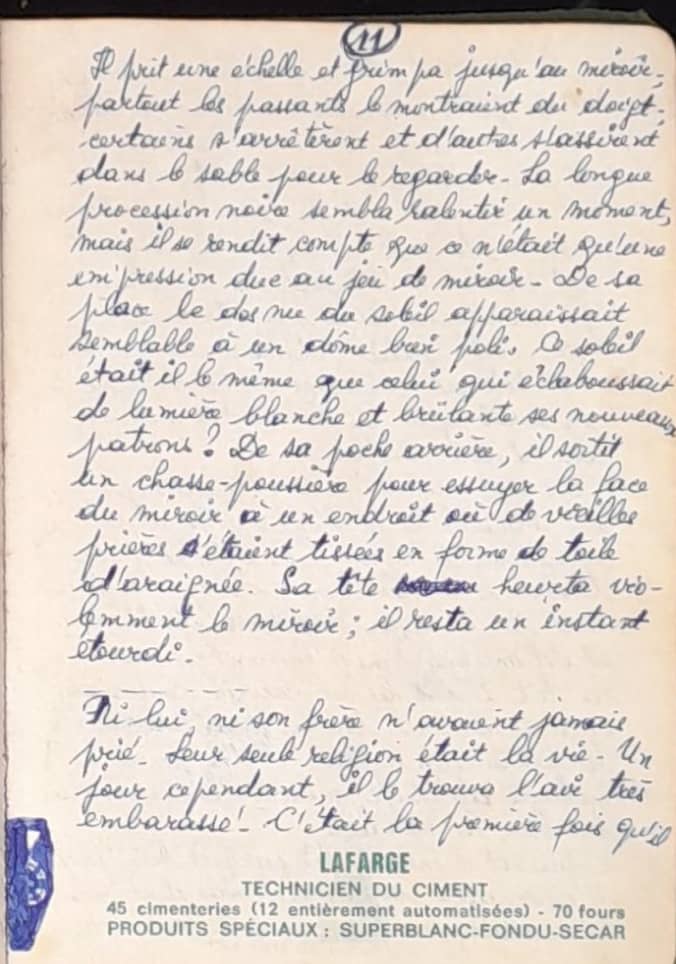 11
Il prit une échelle et grimpa jusqu'au miroir,
partout les passants le montraient du doigt;
certains s'arrêtèrent et d'autres s'assirent
dans le sable pour le regarder. La longue
procession noire sembla ralentir un moment,
mais il se rendit compte que ce n'était qu'une
impression due au jeu de miroir. De sa
place le dos nu du soleil apparaissait
semblable à un dôme bien poli. Ce soleil
était il le même que celui qui éclaboussait
de lumière blanche et brûlante ses nouveaux
patrons? De sa poche arrière, il sortit
un chasse-poussière pour essuyer la face
du miroir à un endroit où de vieilles
prières s'étaient tissées en forme de toile
d'araignée. Sa tête heurta vio-
lemment le miroir; il resta un instant
étourdi.
Ni lui, ni son frère n'avaient jamais
prié. Leur seule religion était la vie. Un
jour cependant, il le trouva l'air très
embarassé. C'était la première fois qu'il
LAFARGE
TECHNICIEN DU CIMENT
45 cimenteries (12 entièrement automatisées) - 70 fours
PRODUITS SPÉCIAUX : SUPERBLANC-FONDU-SECAR